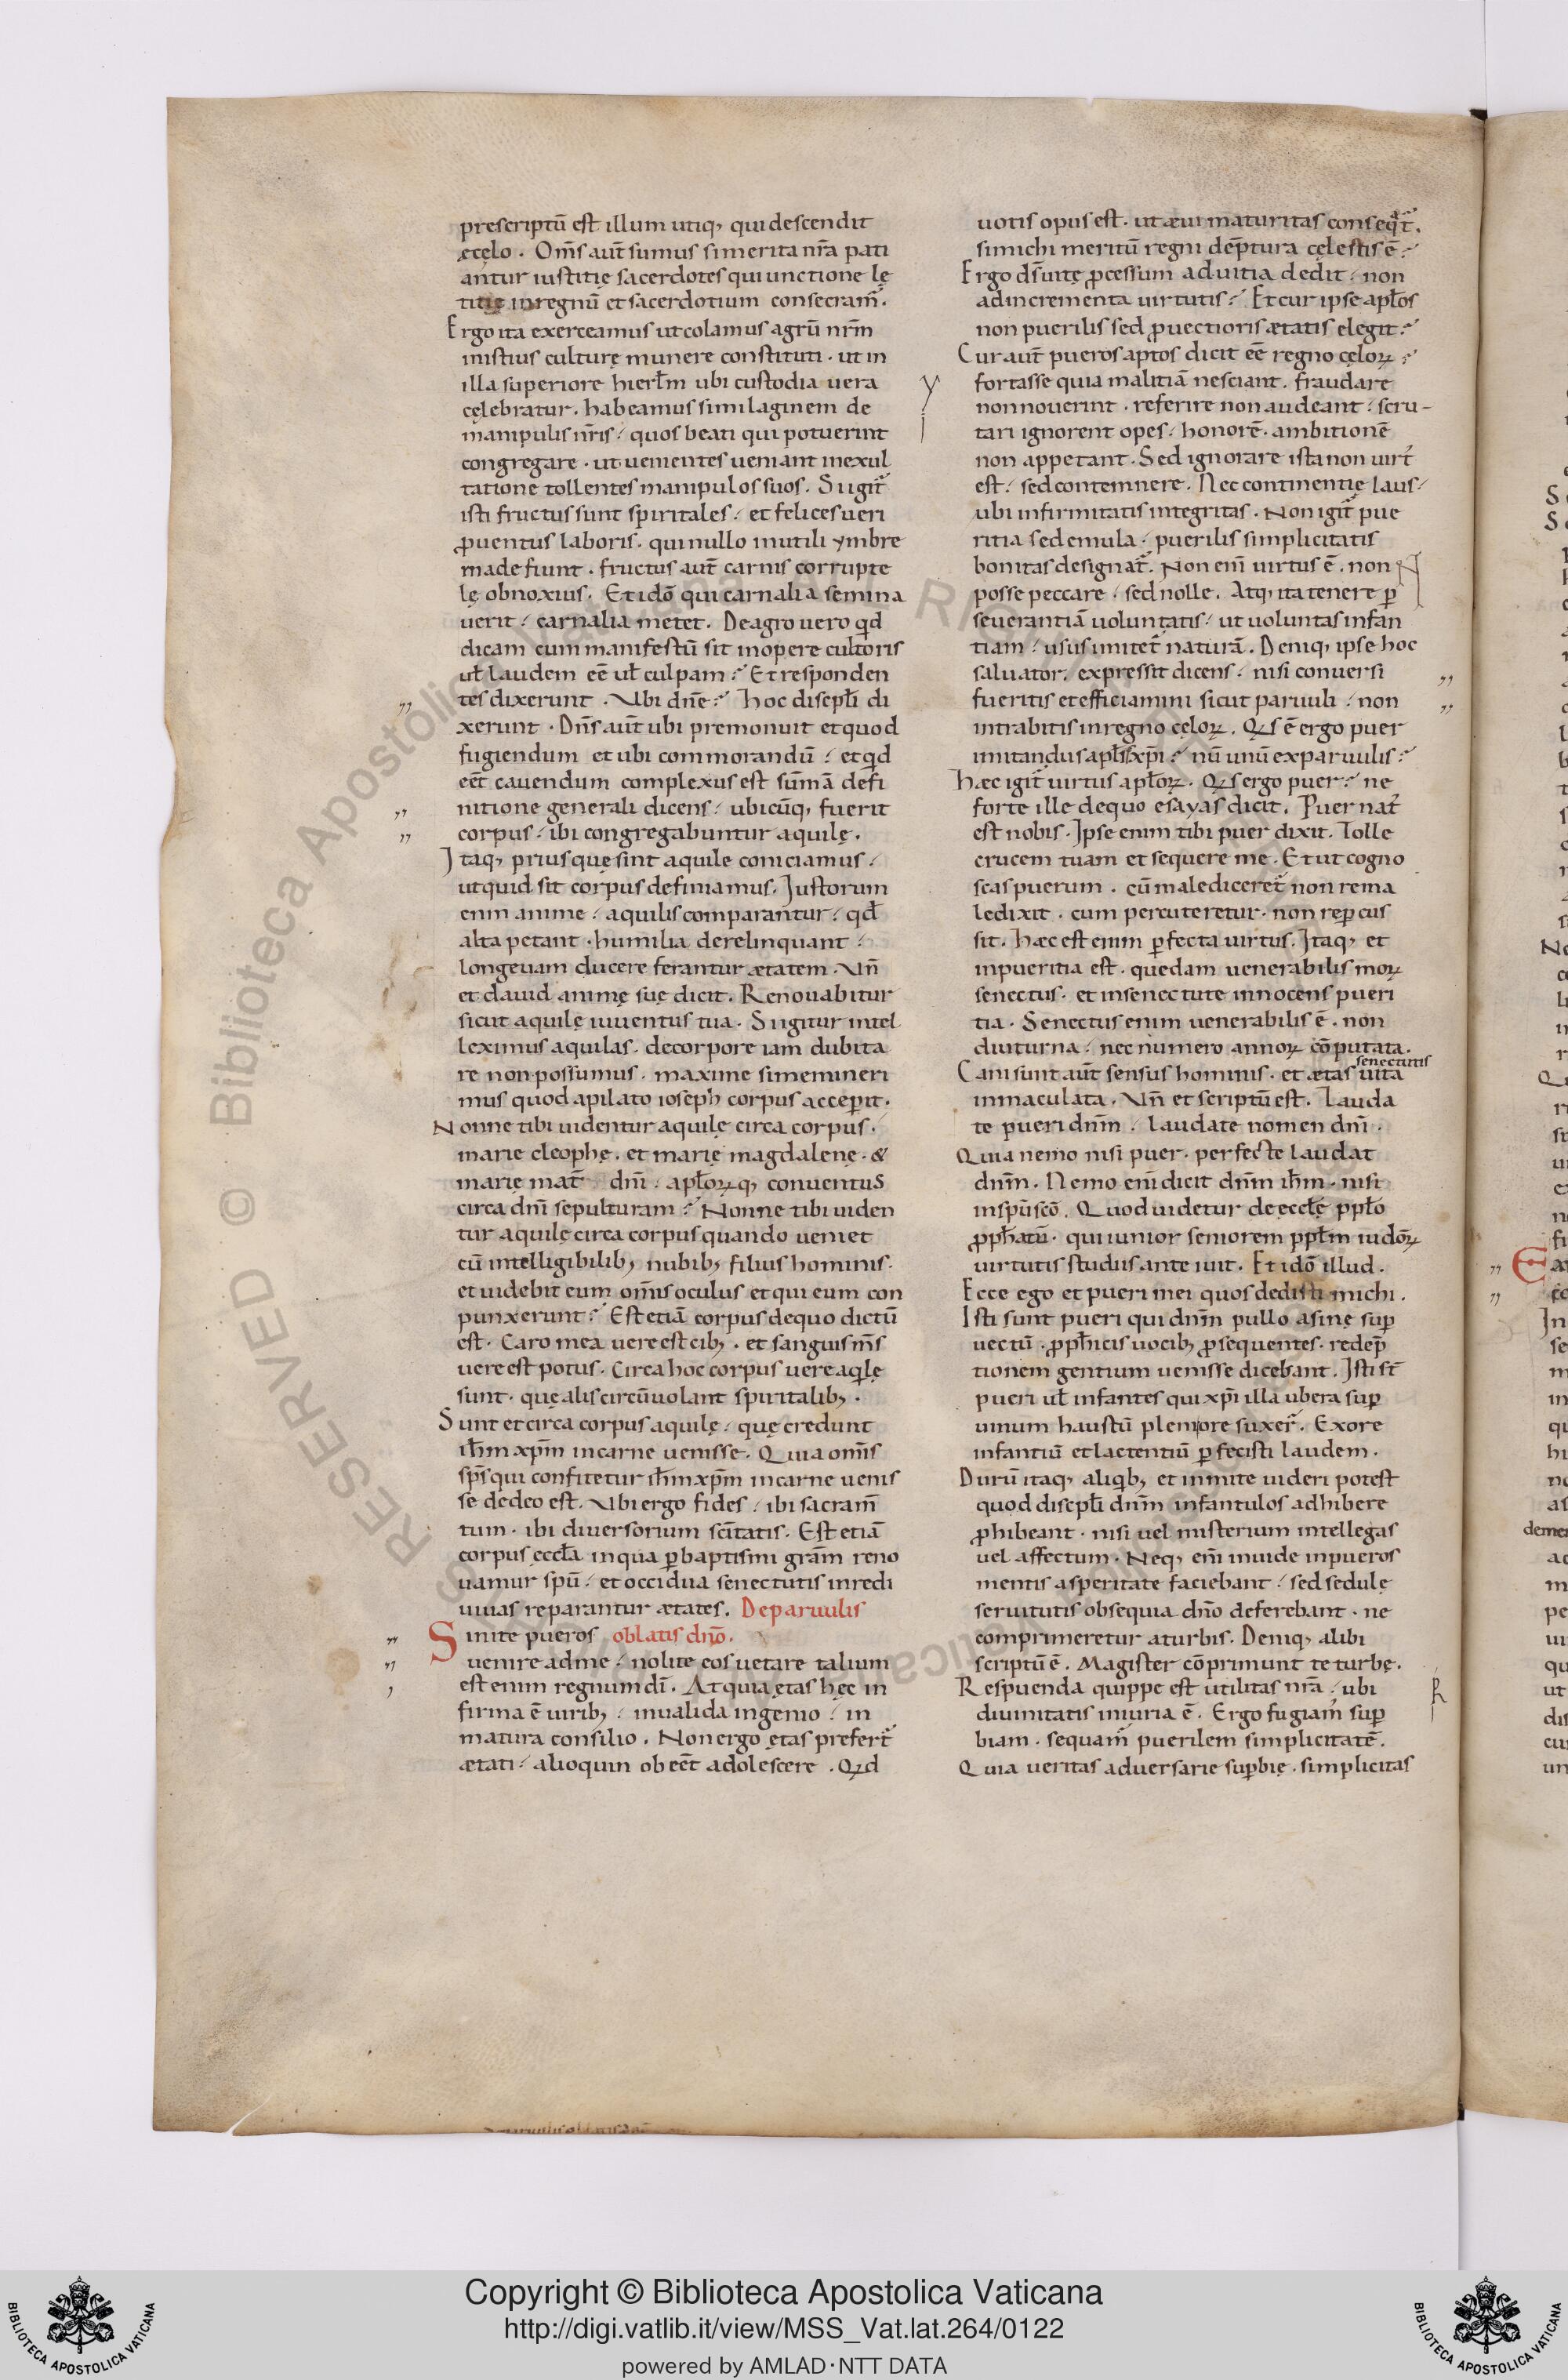 prescriptū est illum utiq, qui descendit
ę cęlo. Om̄s aut̄ sumus si merita nr̄a pati
antur iustitię sacerdotes qui unctione lę
titię in regnū et sacerdotium consecram̄.
Ergo ita exerceamus ut colamus agrū nrm̄
in istius culturę munere constituti. ut in
illa superiore hierłm ubi custodia uera
cęlebratur. habeamus similaginem de
manipulis nr̄is. quos beati qui potuerint
congregare. ut uenientes ueniant in exul
tatione tollentes manipulos suos. Si igit̄
isti fructus sunt spiritales. et felices ueri
ꝓuentus laboris. qui nullo inutili ymbre
madefiunt. fructus aut̄ carnis corrupte
lę obnoxius. Et idō qui carnalia semina
uerit. carnalia metet. De agro uero qd
dicam cum manifestū sit in opere cultoris
uł laudem eē uł culpam? Et responden
tes dixerunt. Ubi dn̄e? Hoc discipłi di
xerunt. Dn̄s aut̄ ubi premonuit et quod
fugiendum et ubi commorandū. et qd
eēt cauendum complexus est sūmā defi
nitione generali dicens. ubicūq, fuerit
corpus. ibi congregabuntur aquilę.
Itaq, prius quę sint aquile coniciamus.
ut quid sit corpus definiamus. Iustorum
enim anime. aquilis comparantur. qđ
alta petant. humilia derelinquant.
longeuam ducere ferantur ætatem. Un̄
et dauid animę suę dicit. Renouabitur
sicut aquilę iuuentus tua. Si igitur intel
leximus aquilas. de corpore iam dubita
re non possumus. maxime si memineri
mus quod a pilato ioseph corpus acceperit.
Nonne tibi uidentur aquilę circa corpus.
marie cleophę. et marię magdalenę. &
marię mat̄ dn̄i. apłoꝝq, conuentus
circa dn̄i sepulturam? Nonne tibi uiden
tur aquilę circa corpus quando ueniet
cū intelligibilib, nubib, filius hominis.
et uidebit eum om̄is oculus et qui eum con
punxerunt? Est etiā corpus de quo dictū
est. Caro mea uere est cib,. et sanguis m̄s
uere est potus. Circa hoc corpus uere aqilę
sunt. quę alis circūuolant spiritalib,.
Sunt et circa corpus aquilę. quę credunt
ih̄m xpm̄ in carne uenisse. Quia omīs
sp̄s qui confitetur ih̄m xpm̄ in carne uenis
se de deo est. Ubi ergo fides. ibi sacram̄
tum. ibi diuersorium scītatis. Est etiā
corpus eccła in qua ꝑ baptismi gram̄ reno
uamur spū. et occidua senectutis in redi
uiuas reparantur ætates. De paruulis
Sinite pueros oblatis dn̄o.
uenire ad me. nolite eos uetare talium
est enim regnum dī. At quia ętas hęc in
firma ē uirib,. inualida ingenio. in
matura consilio. Non ergo ętas prefert̄
ætati. alioquin obeēt adolescere. Qꝛd
uotis opus est. ut æui maturitas conseqt̄.
si michi meritū regni dēptura cęlestis ē?
Ergo ds̄ uitę ꝓcessum ad uitia dedit. non
ad incrementa uirtutis? Et cur ipse apłos
non puerilis sed ꝓuectioris ætatis elegit?
Cur aut̄ pueros aptos dicit eē regno cęloꝝ?
fortasse quia malitiā nesciant. fraudare
non nouerint. referire non audeant. scru-
tari ignorent opes. honorē. ambitionē
non appetant. Sed ignorare ista non uirt̄
est. sed contemnere. Nec continentię laus.
ubi infirmitatis integritas. Non igit̄ pue
ritia sed emula. puerilis simplicitatis
bonitas designat̄. Non enī uirtus ē. non
posse peccare. sed nolle. Atq, ita tenere ꝑ
seuerantiā uoluntatis. ut uoluntas infan
tiam. usus imitet̄ naturā. Deniq, ipse hoc
saluator. expressit dicens. nisi conuersi
fueritis et efficiamini sicut paruuli. non
intrabitis in regno cęloꝝ. Qꝛs ē ergo puer
imitandus apłis xp̄i? nū unū ex paruulis?
Hæc igit̄ uirtus apłoꝝ. Qꝛs ergo puer? ne
forte ille de quo esayas dicit. Puer nat̄
est nobis. Ipse enim tibi puer dixit. Tolle
crucem tuam et sequere me. Et ut cogno
scas puerum. cū malediceret̄ non rema
ledixit. cum percuteretur. non reꝑcus
sit. Hæc est enim ꝑfecta uirtus. Itaq, et
in pueritia est. quedam uenerabilis moꝝ
senectus. et in senectute innocens pueri
tia. Senectus enim uenerabilis ē. non
diuturna. nec numero annoꝝ cōputata.
Cani sunt aut̄ sensus hominis. et ætas senectutis uita
inmaculata. Un̄ et scriptū est. Lauda
te pueri dnm̄. laudate nomen dn̄i.
Quia nemo nisi puer. perfecte laudat
dnm̄. Nemo enī dicit dnm̄ ih̄m. nisi
in spū scō. Quod uidetur de eccłę ppło
ꝓph̄atū. qui iunior seniorem ppłm iudōꝝ
uirtutis studiis ante iuit. Et idō illud.
Ecce ego et pueri mei quos dedisti michi.
Isti sunt pueri qui dnm̄ pullo asinę suꝑ
uectū. ꝓph̄icis uocib, ꝓsequentes. redēp
tionem gentium uenisse dicebant. Isti st̄
pueri uł infantes qui xp̄i illa ubera suꝑ
uinum haustū pleniore suxer̄. Ex ore
infantiū et lactentiū ꝑfecisti laudem.
Durū itaq, aliqib, et inmite uideri potest
quod discipłi dnm̄ infantulos adhibere
ꝓhibeant. nisi uel misterium intellegas
uel affectum. Neq, enī inuide in pueros
mentis asperitate faciebant. sed sedulę
seruitutis obsequia dn̄o deferebant. ne
comprimeretur a turbis. Deniq, alibi
scriptū ē. Magister cōprimunt te turbę.
Respuenda quippe est utilitas nr̄a. ubi
diuinitatis iniuria ē. Ergo fugiam̄ suꝑ
biam. sequam̄ puerilem simplicitatē.
Quia ueritas aduersarie suꝑbię. simplicitas
Copyright © Biblioteca Apostolica Vaticana
http://digi.vatlib.it/view/MSS_Vat.lat.264/0122
powered by AMLAD·NTT DATA
BIBLIOTECA APOSTOLICA VATICANA
BIBLIOTECA APOSTOLICA VATICANA